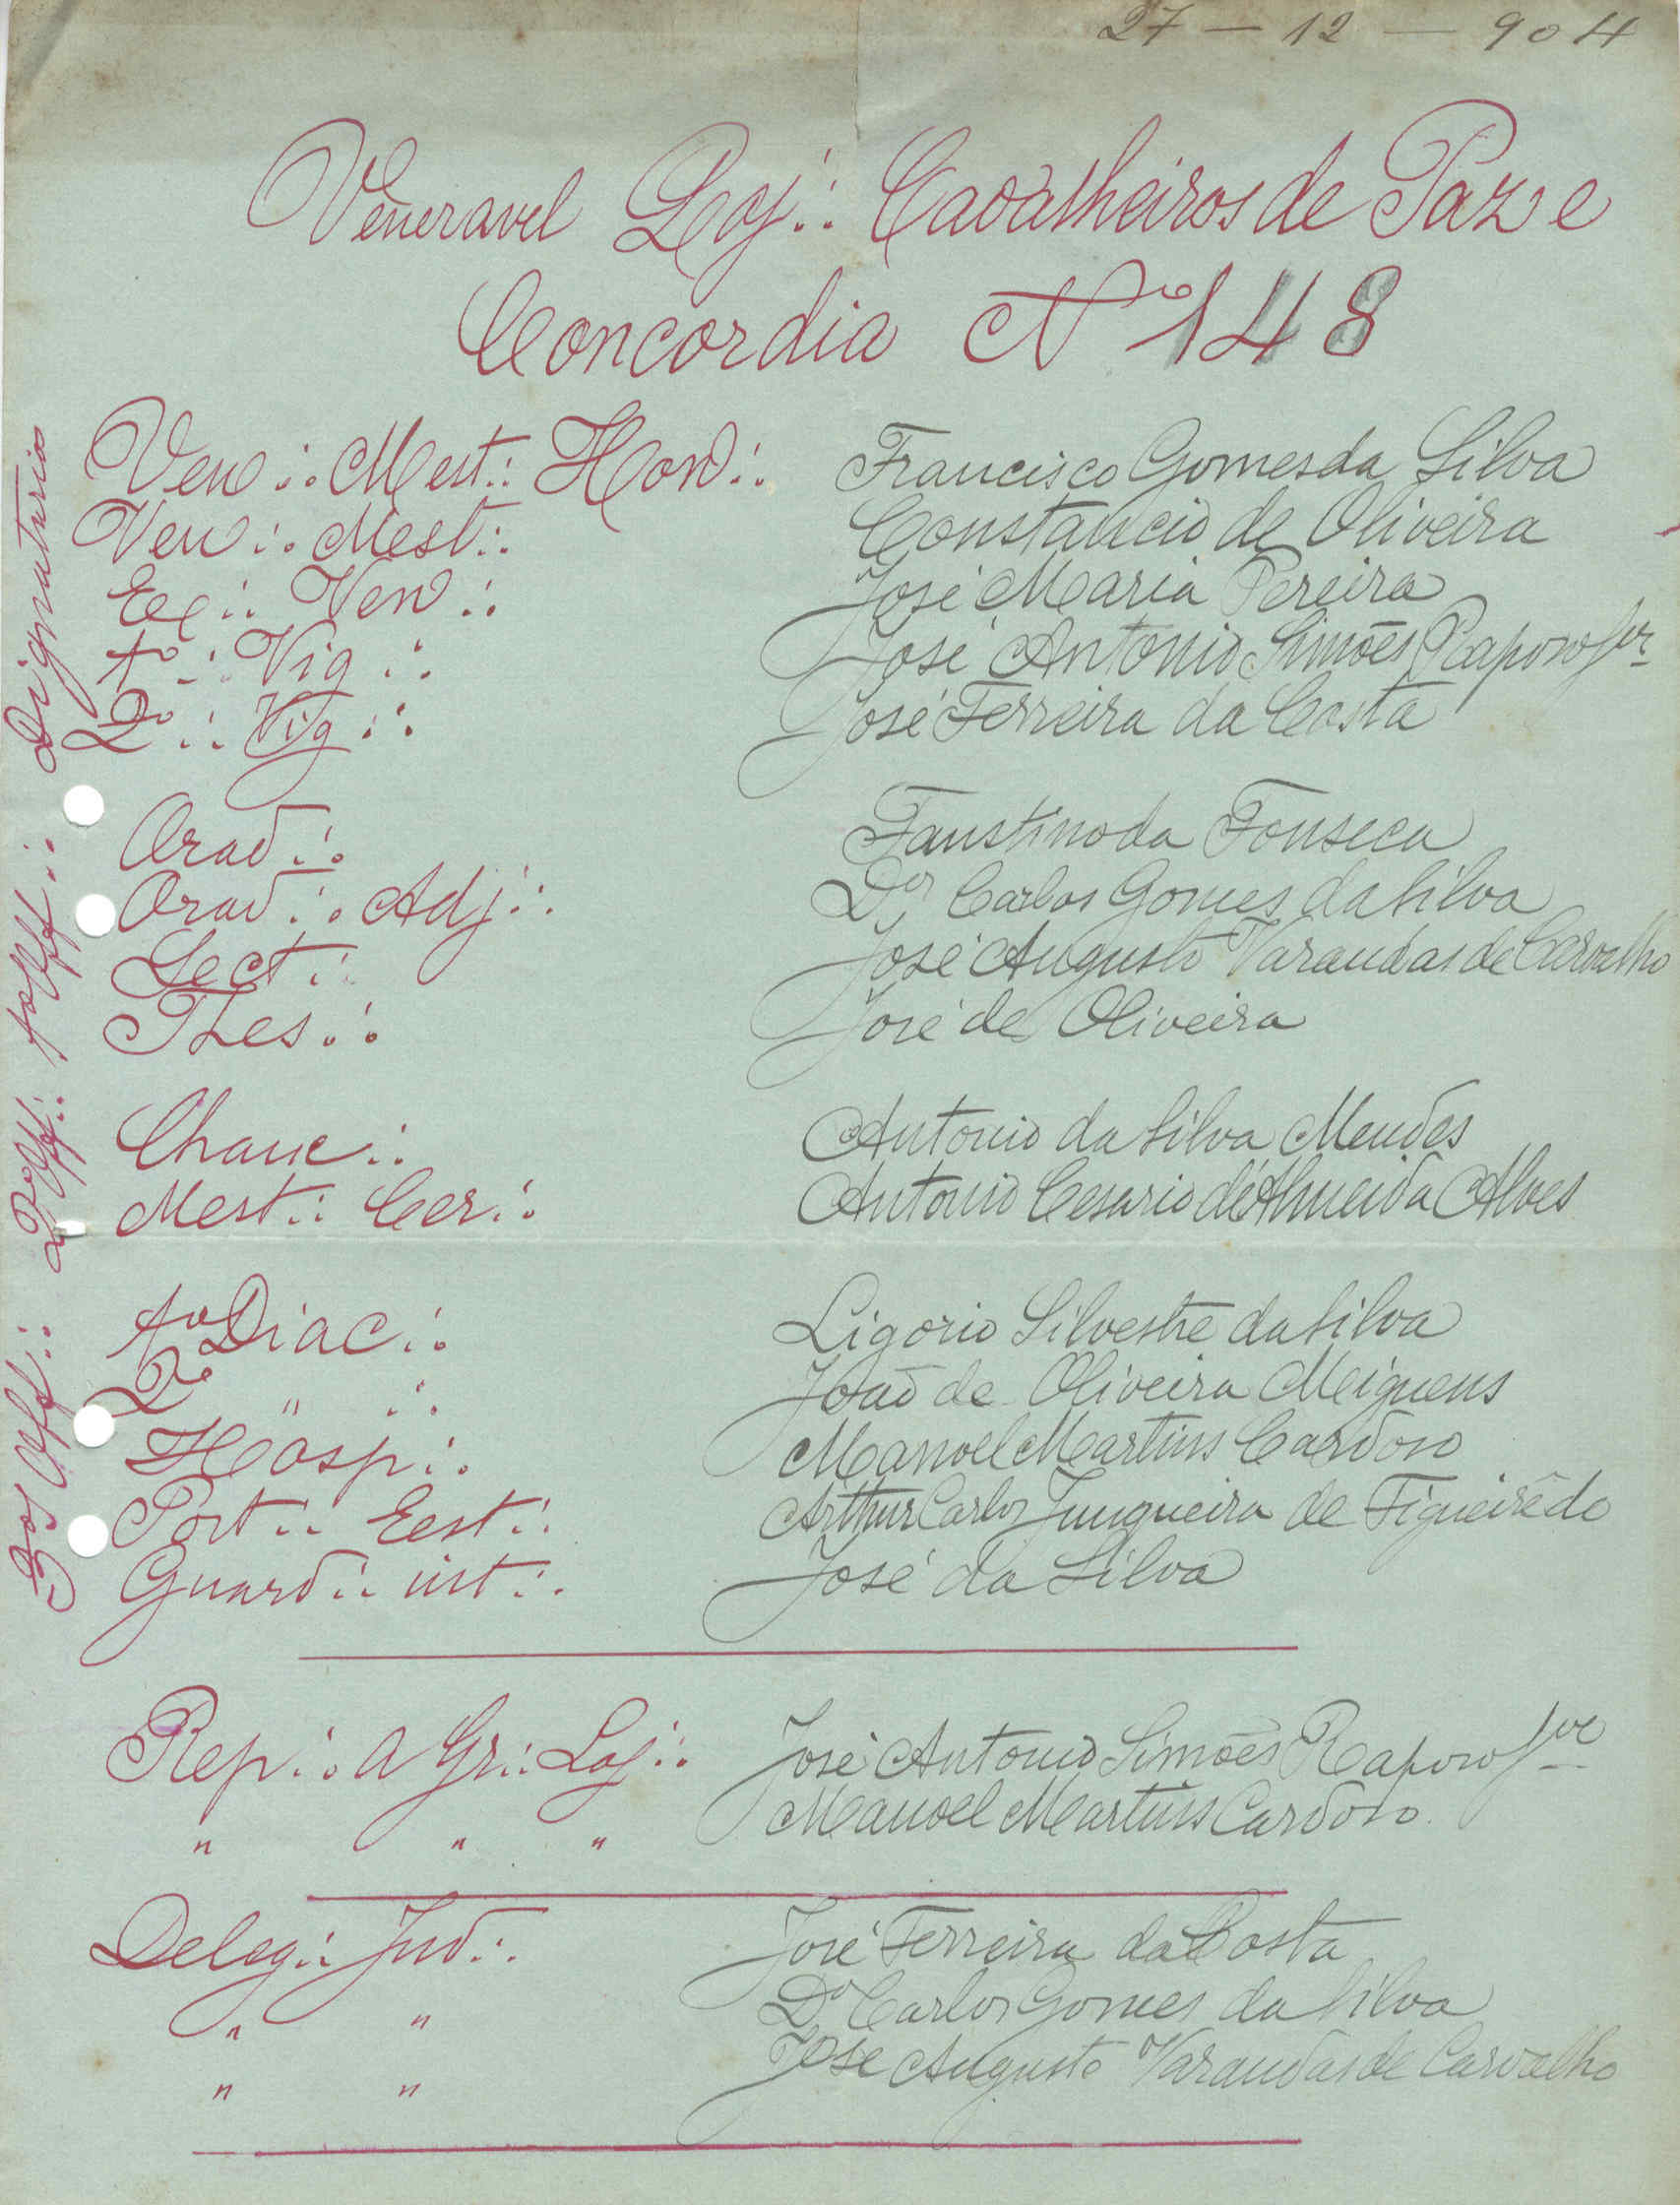 27 — 12 — 904
Veneravel Loj∴ Cavalheiros de Paz e
Concordia Nº 148
Dignatarios
Ven∴ Mest∴ Hon∴ Francisco Gomes da Silva
Ven∴ Mest∴ Constancio de Oliveira
Ex∴ Ven∴ José Maria Pereira
1º∴ Vig∴ José Antonio Simões Raposo Jor
2º∴ Vig∴ José Ferreira da Costa
1os Off∴
Orad∴ Faustino da Fonseca
Orad∴ Adj∴ Dor Carlos Gomes da Silva
Sect∴ José Augusto Varandas de Carvalho
Thes∴ José de Oliveira
2os Off∴
Chanc∴ Antonio da Silva Mendes
Mest∴ Cer∴ Antonio Cesario d'Almeida Alves
3os Off∴
1º Diac∴ Ligorio Silvestre da Silva
2º " ∴ João de Oliveira Meiguens
Hosp∴ Manoel Martins Cardoso
Port∴ Eest∴ Arthur Carlos Junqueira de Figueirêdo
Guard∴ int∴ José da Silva
Rep∴ a Gr∴ Loj∴ José Antonio Simões Raposo Jor
" " " Manoel Martins Cardoso.
Deleg∴ Jud∴ José Ferreira da Costa
" " Dor Carlos Gomes da Silva
" " José Augusto Varandas de Carvalho